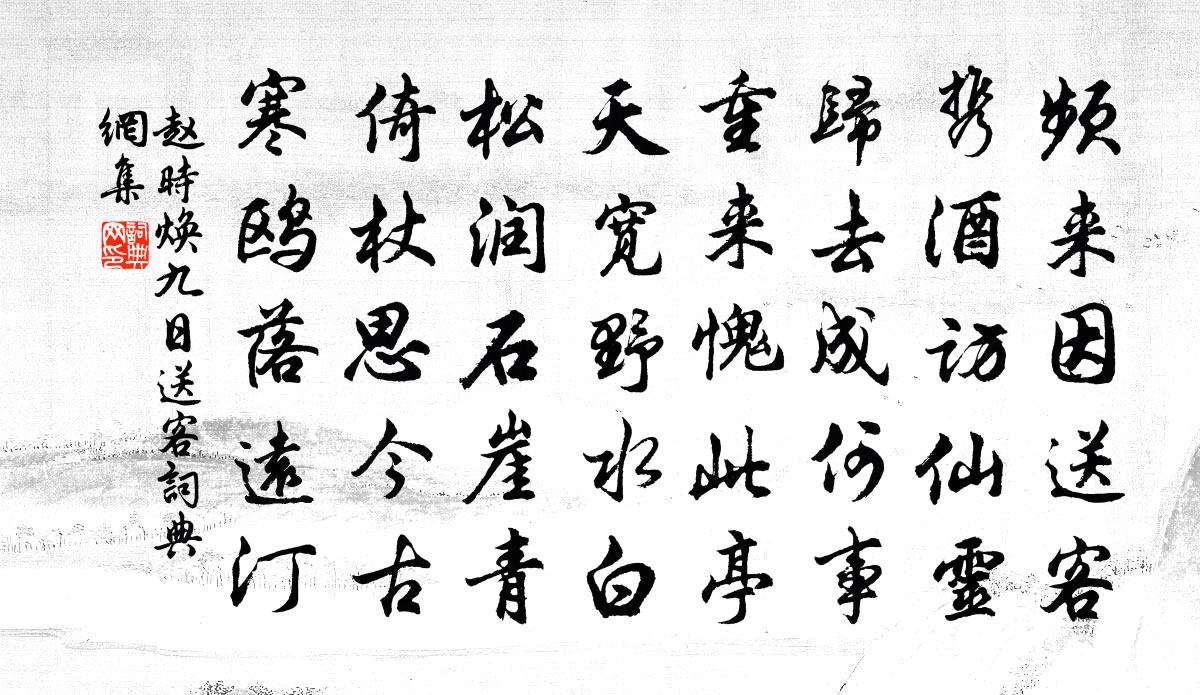 频来因送客
携酒访仙灵
歸去成何事
重来愧此亭
天宽野水白
松润石崖青
倚杖思今古
寒鸥落遠汀
赵時焕九日送客詞典
網集
詞典
网印